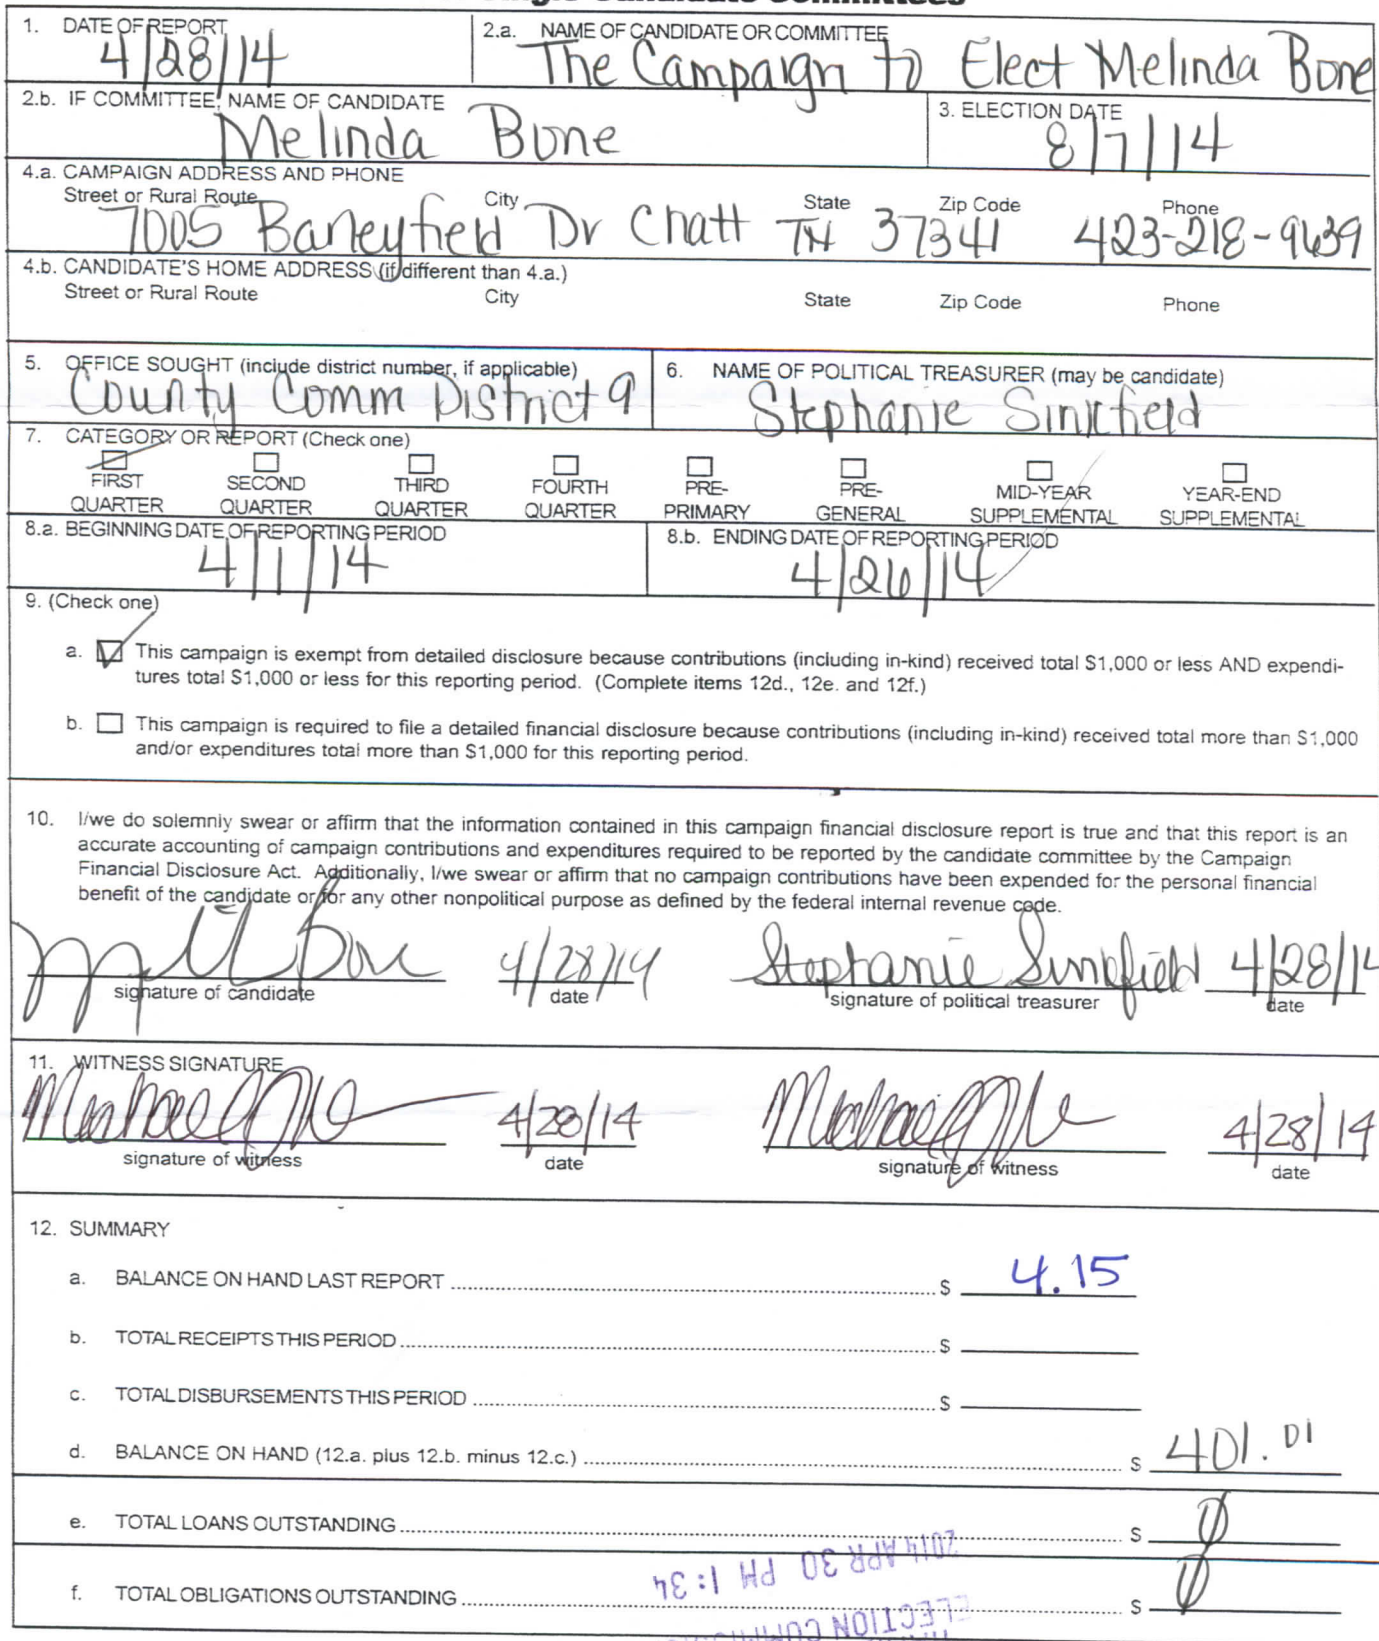 Single Candidate Committees
1. DATE OF REPORT
4/28/14
2.a. NAME OF CANDIDATE OR COMMITTEE
The Campaign to Elect Melinda Bone
2.b. IF COMMITTEE, NAME OF CANDIDATE
Melinda Bone
3. ELECTION DATE
8/7/14
4.a. CAMPAIGN ADDRESS AND PHONE
Street or Rural Route City State Zip Code Phone
7005 Dr Chatt TN 37341 423-218-9639
4.b. CANDIDATE'S HOME ADDRESS (if different than 4.a.)
Street or Rural Route City State Zip Code Phone
5. OFFICE SOUGHT (include district number, if applicable)
County Comm District 9
6. NAME OF POLITICAL TREASURER (may be candidate)
Stephanie Sinkfield
7. CATEGORY OR REPORT (Check one)
FIRST QUARTER
SECOND QUARTER
THIRD QUARTER
FOURTH QUARTER
PRE-PRIMARY
PRE-GENERAL
MID-YEAR SUPPLEMENTAL
YEAR-END SUPPLEMENTAL
8.a. BEGINNING DATE OF REPORTING PERIOD
4/1/14
8.b. ENDING DATE OF REPORTING PERIOD
4/26/14
9. (Check one)
a. This campaign is exempt from detailed disclosure because contributions (including in-kind) received total $1,000 or less AND expendi-
tures total $1,000 or less for this reporting period. (Complete items 12d., 12e. and 12f.)
b. This campaign is required to file a detailed financial disclosure because contributions (including in-kind) received total more than $1,000
and/or expenditures total more than $1,000 for this reporting period.
10. I/we do solemnly swear or affirm that the information contained in this campaign financial disclosure report is true and that this report is an
accurate accounting of campaign contributions and expenditures required to be reported by the candidate committee by the Campaign
Financial Disclosure Act. Additionally, I/we swear or affirm that no campaign contributions have been expended for the personal financial
benefit of the candidate or for any other nonpolitical purpose as defined by the federal internal revenue code.
4/28/14 Stephanie Sinkfield 4/28/14
signature of candidate date signature of political treasurer date
11. WITNESS SIGNATURE
4/28/14 4/28/14
signature of witness date signature of witness date
12. SUMMARY
a. BALANCE ON HAND LAST REPORT $ 4.15
b. TOTAL RECEIPTS THIS PERIOD $
c. TOTAL DISBURSEMENTS THIS PERIOD $
d. BALANCE ON HAND (12.a. plus 12.b. minus 12.c.) $ 401.01
e. TOTAL LOANS OUTSTANDING $ 0
2014 APR 30 PM 1:34
f. TOTAL OBLIGATIONS OUTSTANDING $ 0
ELECTION